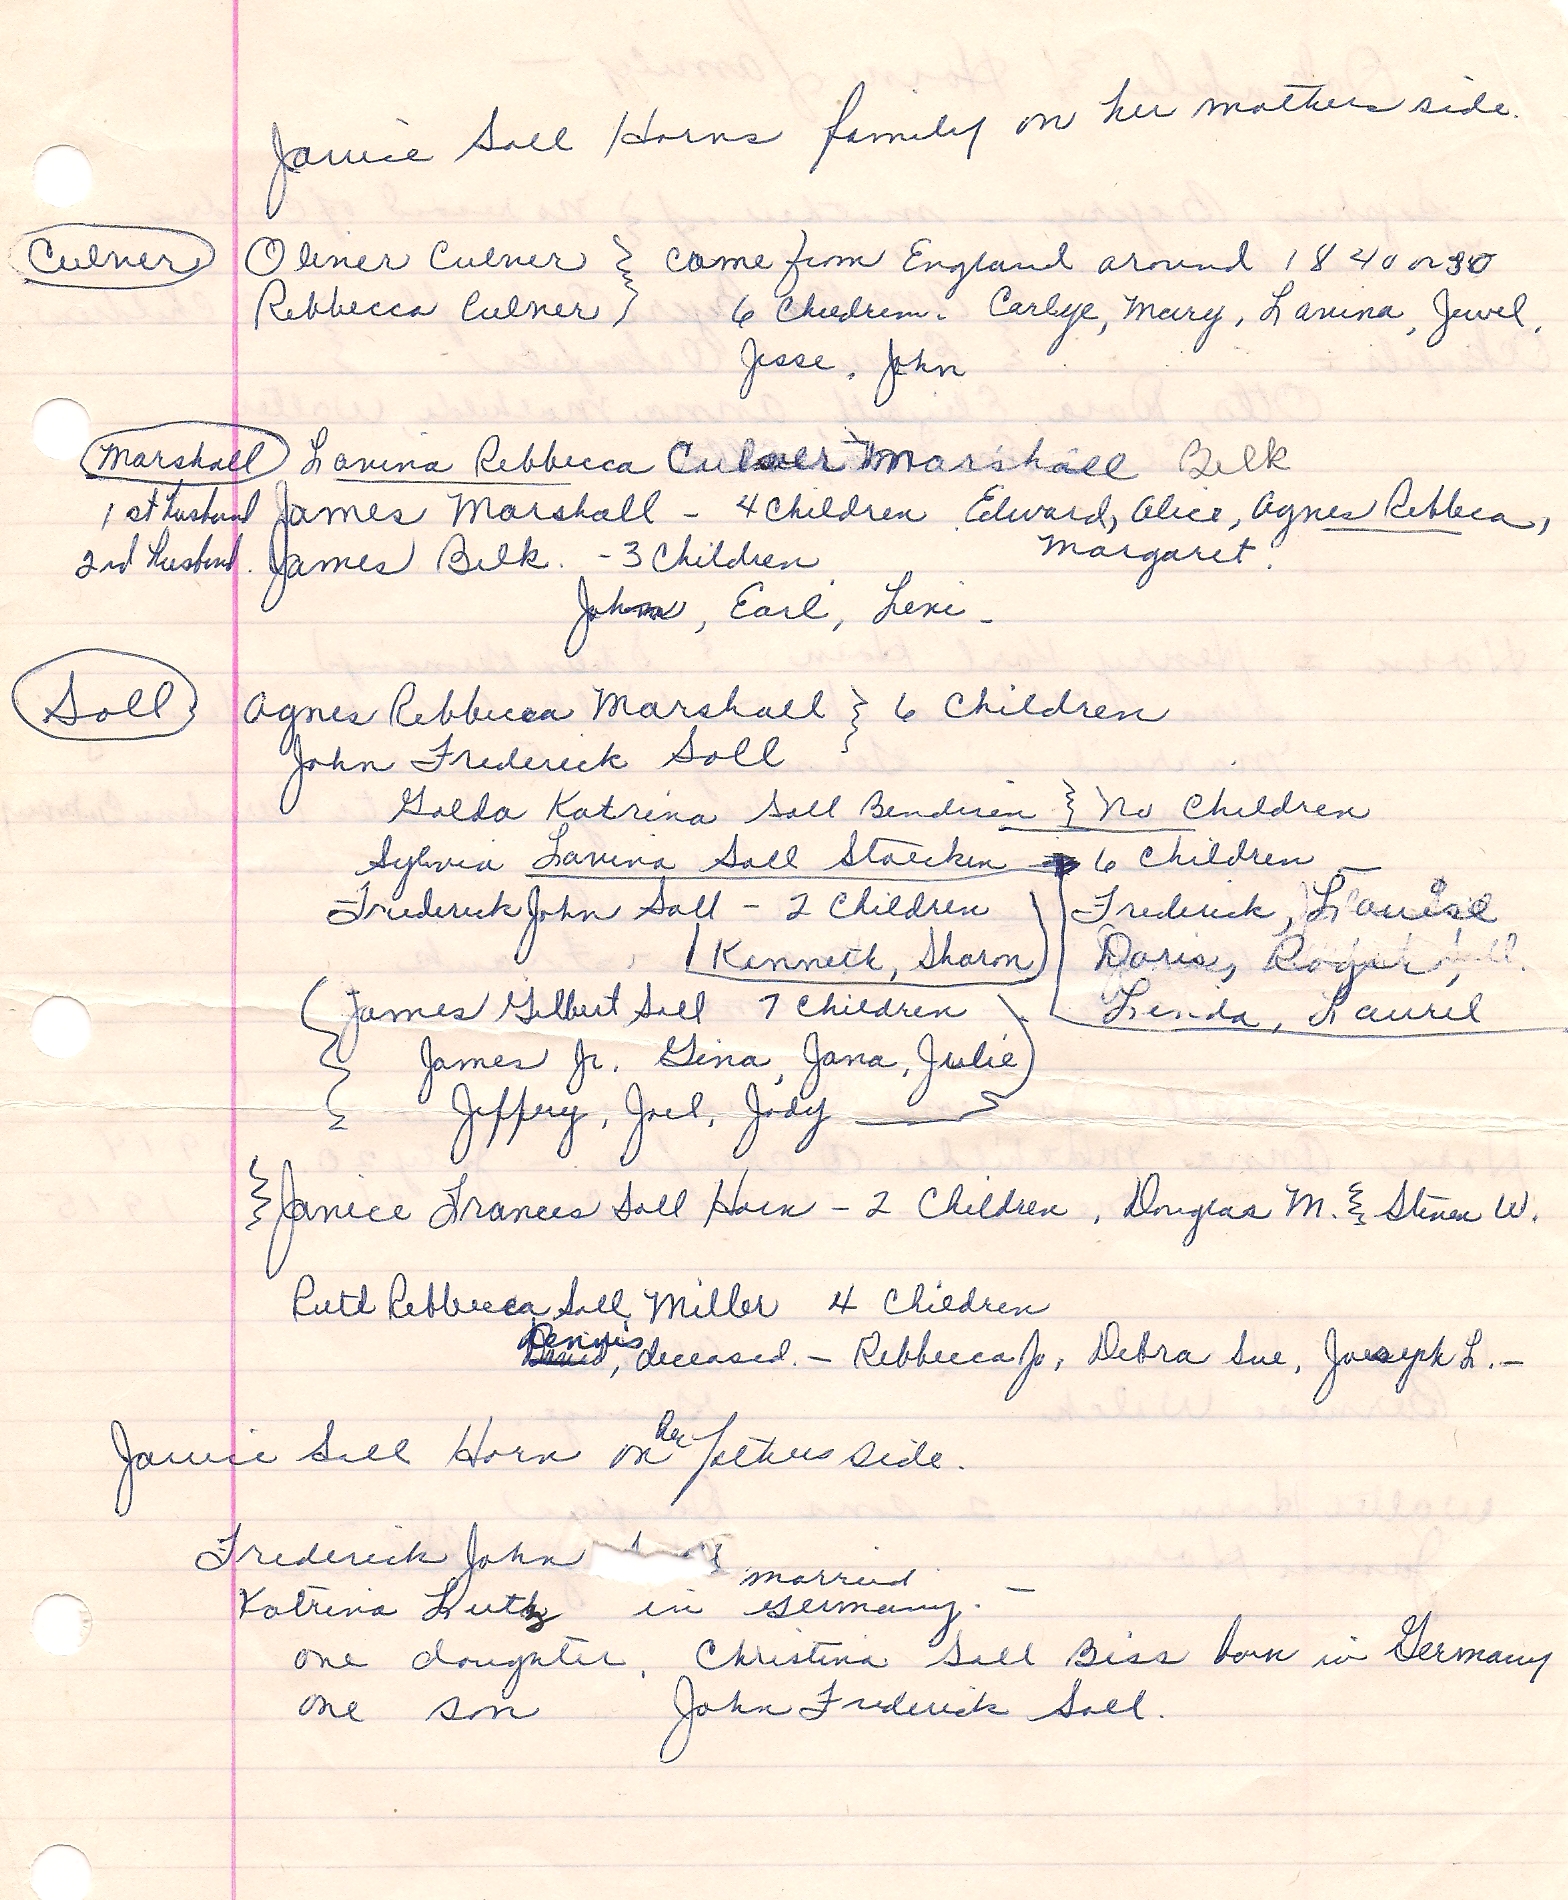 Janice Soll Horns family on her mothers side.
Culver Oliver Culver } came from England around 1840 or 30
Rebbecca Culver } 6 Children. Carlye, Mary, Lavina, Jewel,
Jesse, John
Marshall Lavina Rebbecca Culver Marshall Belk
1st husband James Marshall - 4 Children Edward, Alice, Agnes Rebbeca,
Margaret.
2nd husband. James Belk. - 3 Children
John, Earl, Levi -
Soll Agnes Rebbecca Marshall } 6 Children
John Frederick Soll
Golda Katrina Soll Bendixen } No Children
Sylvia Lavina Soll Staecken → 6 Children
Frederick, Louise
Doris, Roger,
Linda, Laurel
Frederick John Soll - 2 Children
Kenneth, Sharon
James Gilbert Soll 7 Children
James Jr. Gina, Jana, Julie
Jeffery, Joel, Jody
Janice Frances Soll Horn - 2 Children, Douglas M. & Steven W.
Ruth Rebbecca Soll Miller 4 Children
Dennis, deceased. - Rebbecca Jo, Debra Sue, Joeseph L. -
Janice Soll Horn on her fathers side.
Frederick John
married
Katrina Lutz in Germany. -
one daughter, Christina Soll Biss born in Germany
one son John Frederick Soll.